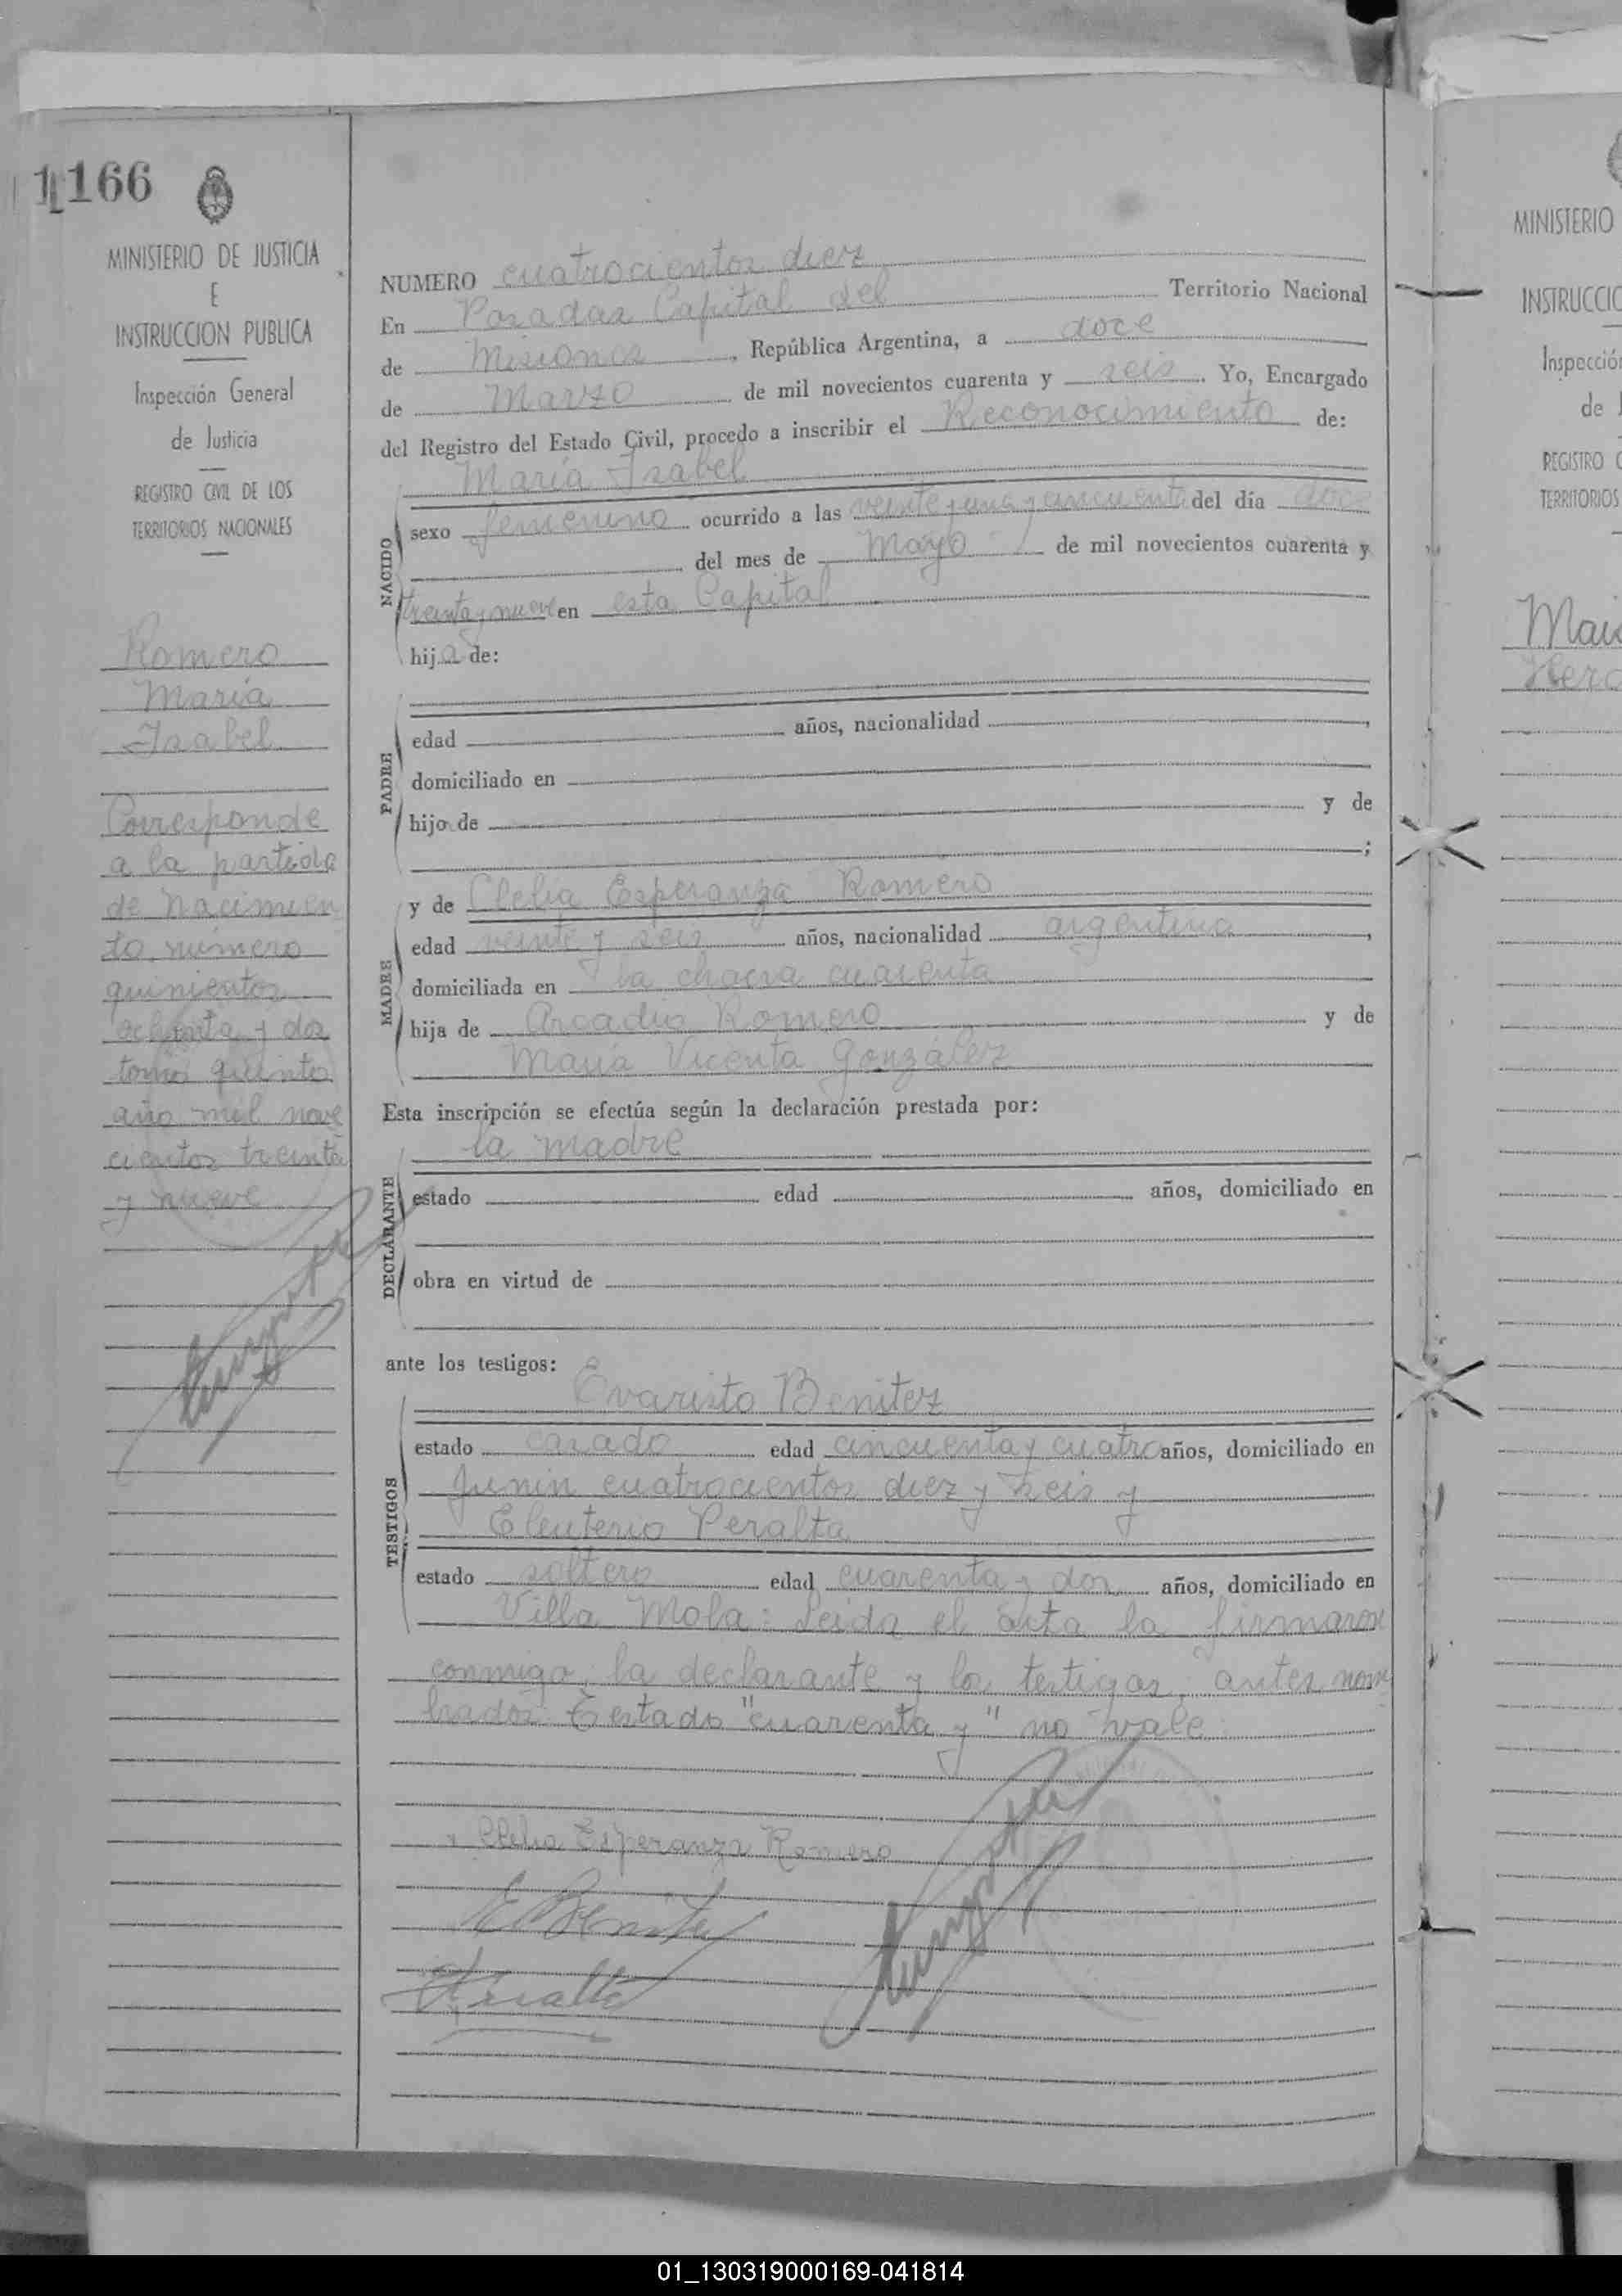 1166
MINISTERIO DE JUSTICIA
E
INSTRUCCION PUBLICA
Inspección General
de Justicia
REGISTRO CIVIL DE LOS
TERRITORIOS NACIONALES
Romero
María
Isabel
Corresponde
a la partida
de nacimien
to número
quinientos
ochenta y dos
tomo quinto
año mil nove
cientos treinta
y nueve
NUMERO cuatrocientos diez
En Posadas Capital del Territorio Nacional
de Misiones, República Argentina, a doce
de Marzo de mil novecientos cuarenta y seis. Yo, Encargado
del Registro del Estado Civil, procedo a inscribir el Reconocimiento de:
María Isabel
NACIDO
sexo femenino ocurrido a las veinte y una y cincuenta del día doce
del mes de Mayo de mil novecientos cuarenta y
treinta y nueve en esta Capital
hija de:
PADRE
edad años, nacionalidad ,
domiciliado en
hijo de y de
;
MADRE
y de Clelia Esperanza Romero
edad veinte y seis años, nacionalidad argentina,
domiciliada en la chacra cuarenta
hija de Arcadio Romero y de
María Vicenta González
Esta inscripción se efectúa según la declaración prestada por:
la madre
DECLARANTE
estado edad años, domiciliado en
obra en virtud de
ante los testigos:
Evaristo Benitez
TESTIGOS
estado casado edad cincuenta y cuatro años, domiciliado en
Junin cuatrocientos diez y seis y
Eleuterio Peralta
estado soltero edad cuarenta y dos años, domiciliado en
Villa Mola: Leida el acta la firmaron
conmigo, la declarante y los testigos, antes nom
brados Testado "cuarenta y" no vale
Clelia Esperanza Romero
E Benitez
Peralta
MINISTERIO
INSTRUCCIO
Inspecció
de J
REGISTRO C
TERRITORIOS
01_130319000169-041814